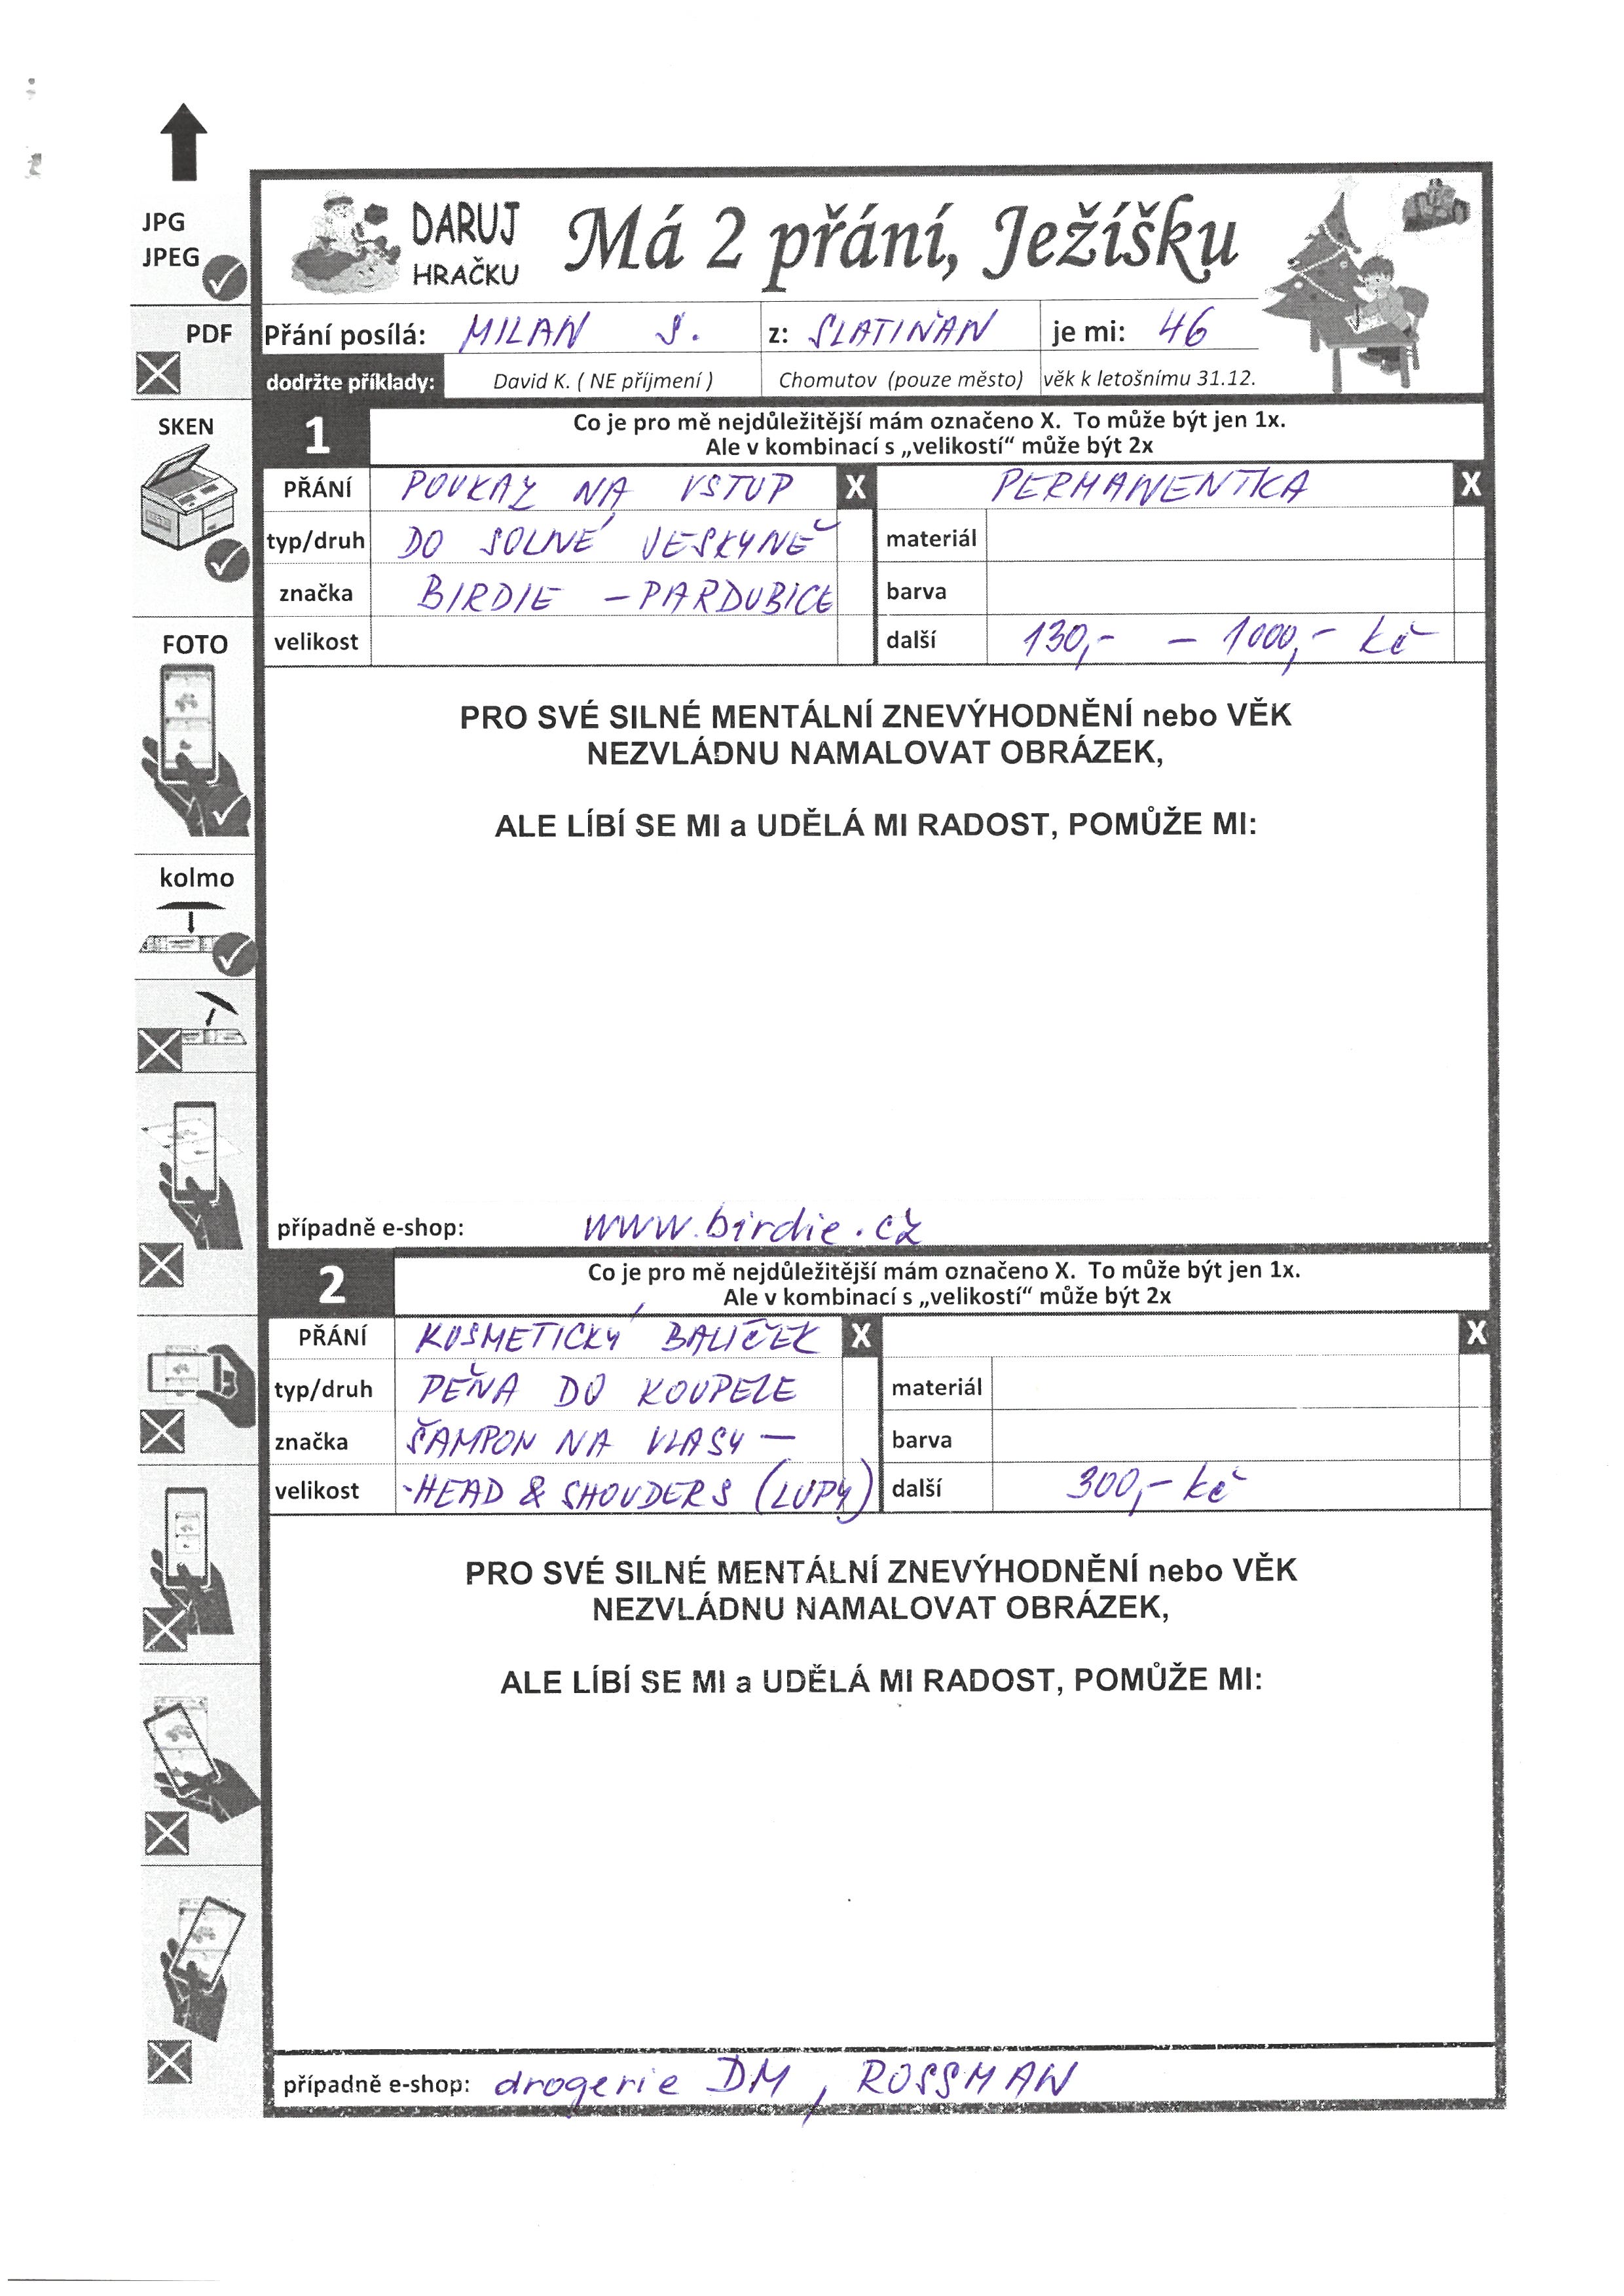 JPG
JPEG
DARUJ
HRAČKU
Má 2 přání, Ježíšku
PDF
Přání posílá: MILAN S. z: SLATIŇAN je mi: 46
dodržte příklady: David K. ( NE příjmení ) Chomutov (pouze město) věk k letošnímu 31.12.
SKEN
1
Co je pro mě nejdůležitější mám označeno X. To může být jen 1x.
Ale v kombinací s „velikostí“ může být 2x
PŘÁNÍ POUKAZ NA VSTUP X PERMANENTKA X
typ/druh DO SOLNÉ JESKYNĚ materiál
značka BIRDIE - PARDUBICE barva
velikost další 130,- - 1000,- kč
FOTO
PRO SVÉ SILNÉ MENTÁLNÍ ZNEVÝHODNĚNÍ nebo VĚK
NEZVLÁDNU NAMALOVAT OBRÁZEK,
ALE LÍBÍ SE MI a UDĚLÁ MI RADOST, POMŮŽE MI:
kolmo
případně e-shop: www.birdie.cz
2
Co je pro mě nejdůležitější mám označeno X. To může být jen 1x.
Ale v kombinací s „velikostí“ může být 2x
PŘÁNÍ KOSMETICKÝ BALÍČEK X X
typ/druh PĚŇA DO KOUPELE materiál
značka ŠAMPON NA VLASY - barva
velikost -HEAD & SHOUDERS (LUPY) další 300,- kč
PRO SVÉ SILNÉ MENTÁLNÍ ZNEVÝHODNĚNÍ nebo VĚK
NEZVLÁDNU NAMALOVAT OBRÁZEK,
ALE LÍBÍ SE MI a UDĚLÁ MI RADOST, POMŮŽE MI:
případně e-shop: drogerie DM, ROSSMAN